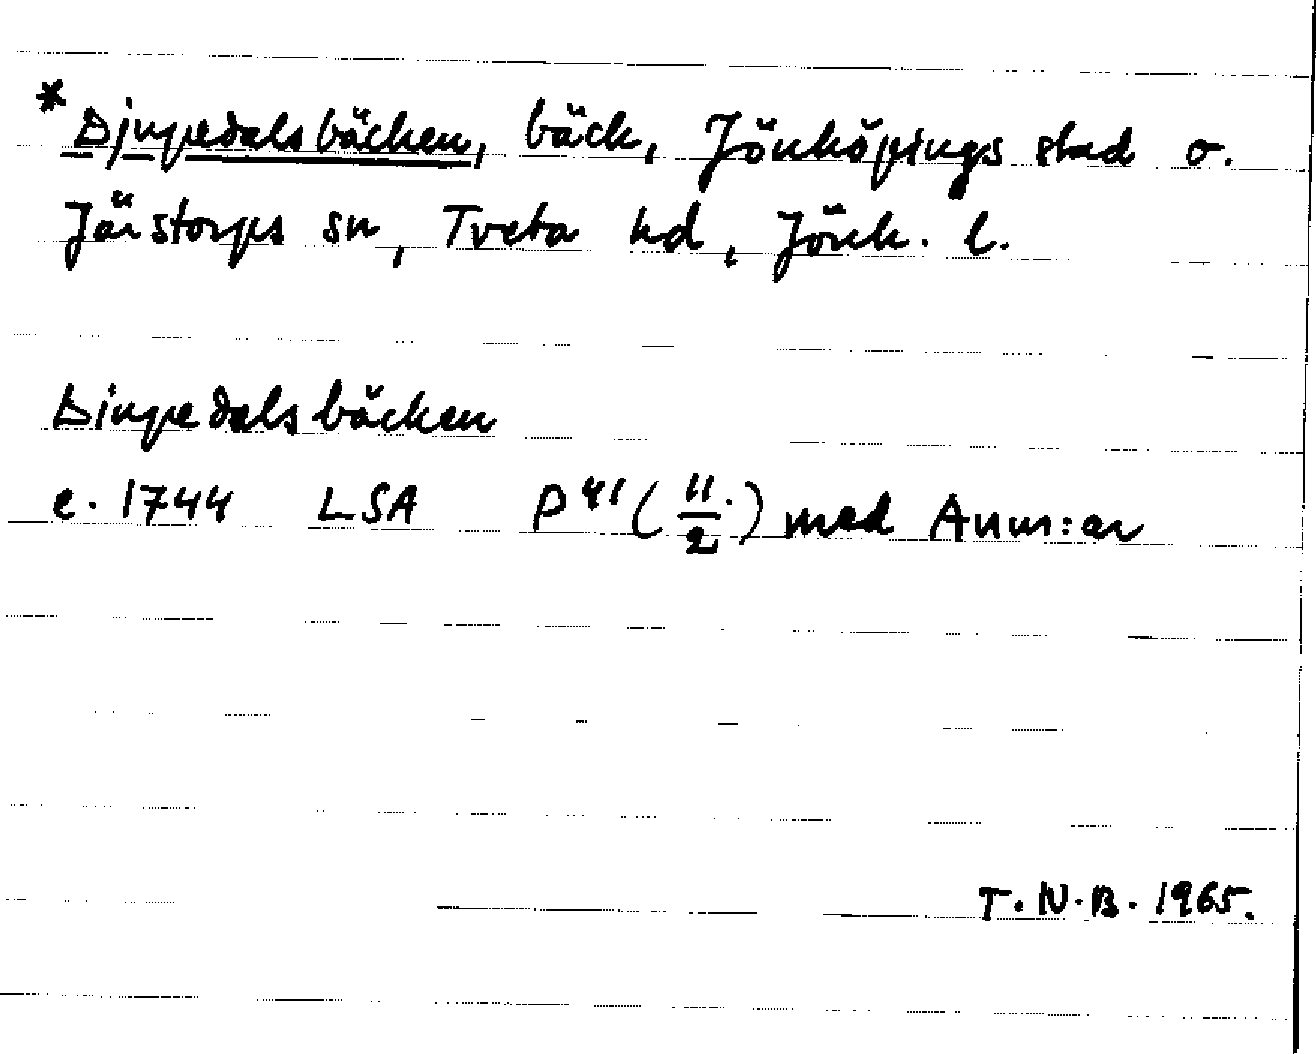 *Djupedalsbäcken, bäck, Jönköpings stad o.
Järstorps sn, Tveta hd, Jönk. l.
Diupedalsbäcken
c. 1744 LSA P 41 (11/2.) med Anm:ar
T.N.B. 1965.